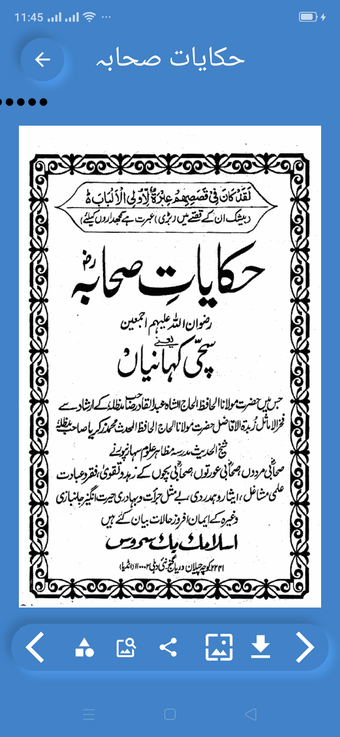 11:45
حکایات صحابہ
لَقَدْ كَانَ فِي قَصَصِهِمْ عِبْرَةٌ لِّأُولِي الْأَلْبَابِ ط
(بیشک ان کے قصّے میں (بڑی) عبرت ہے سمجھداروں کیلئے)
حکایاتِ صحابہ رض
رضوان اللہ علیہم اجمعین
یعنے
سچّی کہانیاں
جس میں حضرت مولانا الحافظ الحاج الشاہ عبدالقادر صاحب مدظلہٗ کے ارشاد سے
فخر الاماثل زبدۃ الافاضل حضرت مولانا الحاج الحافظ المحدث محمد زکریا صاحب مدظلہٗ
شیخ الحدیث مدرسہ مظاہر علوم سہارنپور نے
صحابی مردوں، صحابی عورتوں، صحابی بچوں کے زہد و تقویٰ، فقر و عبادت
علمی مشاغل، ایثار و ہمدردی، بے مثل جرأت و بہادری، حیرت انگیز جانبازی
وغیرہ کے ایمان افروز حالات بیان کئے ہیں
اسلامک بک سروس
۲۲۴۱ کوچہ چیلان دریا گنج نئی دہلی ۱۱۰۰۰۲ (انڈیا)